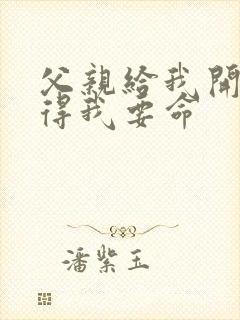 父親給我開
得我要命
潘紫玉